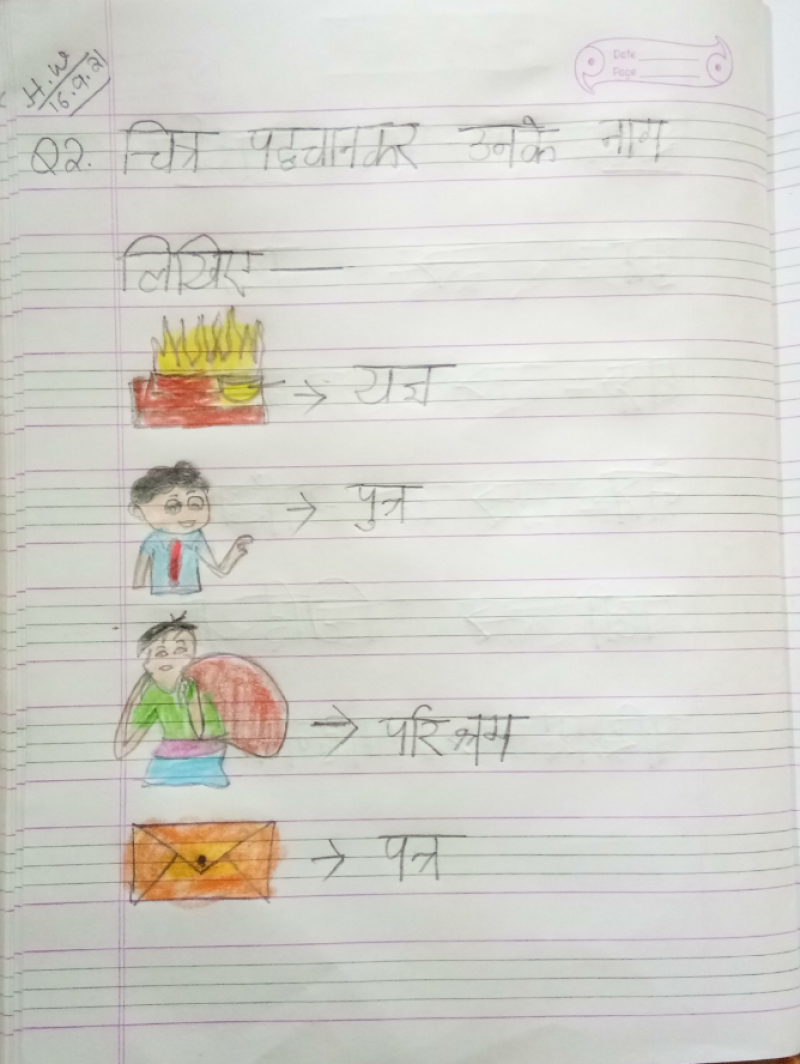 H.W
16.9.21
Date
Page
Q2. चित्र पहचानकर उनके नाम
लिखिए —
→ यज्ञ
→ पुत्र
→ परिश्रम
→ पत्र